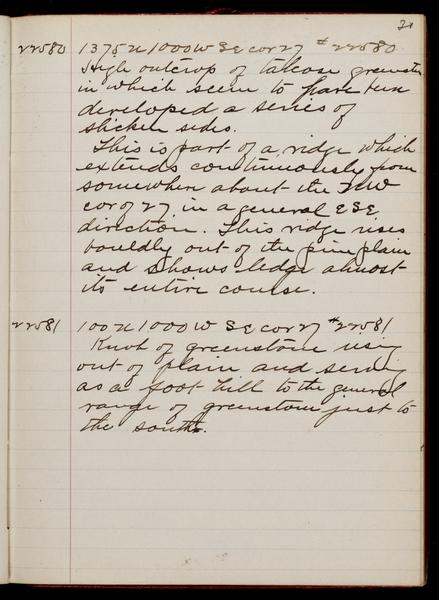 21
22580 1375 N 1000 W SE cor 27 #22580
High outcrop of talcose greenstone
in which seem to have been
developed a series of
slicken sides.
This is part of a ridge which
extends continuously from
somewhere about the NW
cor of 27, in a general ESE
direction. This ridge rises
bouldly out of the pine plain
and shows ledge almost
its entire course.
22581 100 N 1000 W SE cor 27 #22581
Knob of greenstone rising
out of plain and serving
as a foot hill to the general
range of greenstone just to
the south.